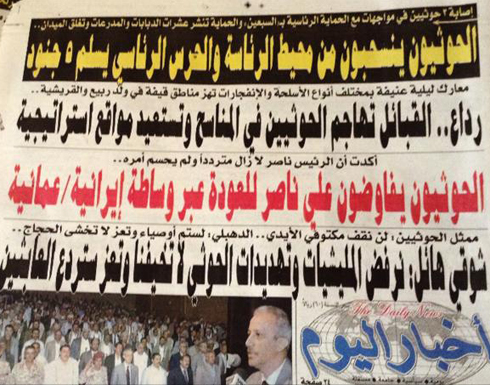 إصابة ٣ حوثيين في مواجهات مع الحماية الرئاسية بـ السبعين، والحماية تنشر عشرات الدبابات والمدرعات وتغلق الميدان..
الحوثيون ينسحبون من محيط الرئاسة والحرس الرئاسي يسلم ٥ جنود
معارك ليلية عنيفة بمختلف أنواع الأسلحة والإنفجارات تهز مناطق قيفة في ولد ربيع والقريشية..
رداع.. القبائل تهاجم الحوثيين في المناسح وتستعيد مواقع استراتيجية
أكدت أن الرئيس ناصر لا زال متردداً ولم يحسم أمره..
الحوثيون يفاوضون علي ناصر للعودة عبر وساطة إيرانية/عمانية
ممثل الحوثيين: لن نقف مكتوفي الأيدي.. الدهبلي: لستم أوصياء وتعز لا تخشى الحجاج..
شوقي هائل: نرفض المليشيات وتهديدات الحوثي لا تخيفنا وتعز ستردع العابثين
The Daily News
أخبار اليوم
يومية • سياسية • جامعة • مستقلة
٢٤ صفحة